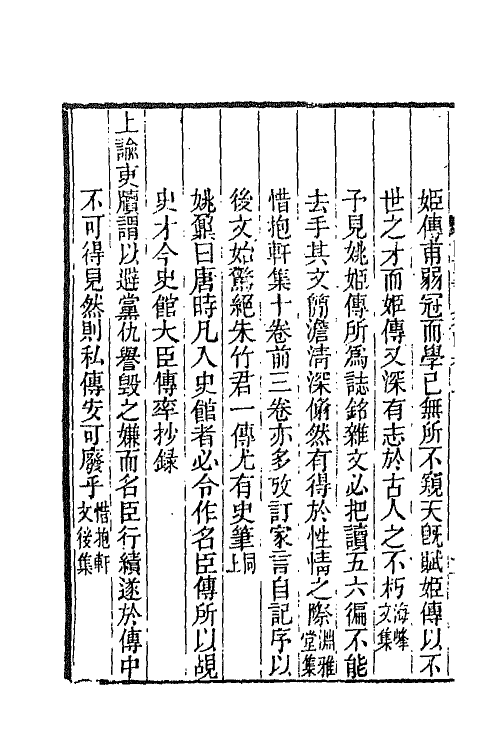 姬傳甫弱冠而學已無所不窺天旣賦姬傳以不
世之才而姬傳又深有志於古人之不朽海峰文集
予見姚姬傳所爲誌銘雜文必把讀五六徧不能
去手其文簡澹清深翛然有得於性情之際淵雅堂集
惜抱軒集十卷前三卷亦多攷訂家言自記序以
後文始驚絕朱竹君一傳尤有史筆同上
姚鼐曰唐時凡入史館者必令作名臣傳所以覘
史才今史館大臣傳率抄錄
上諭吏牘謂以避黨仇譽毀之嫌而名臣行績遂於傳中
不可得見然則私傳安可廢乎惜抱軒文後集